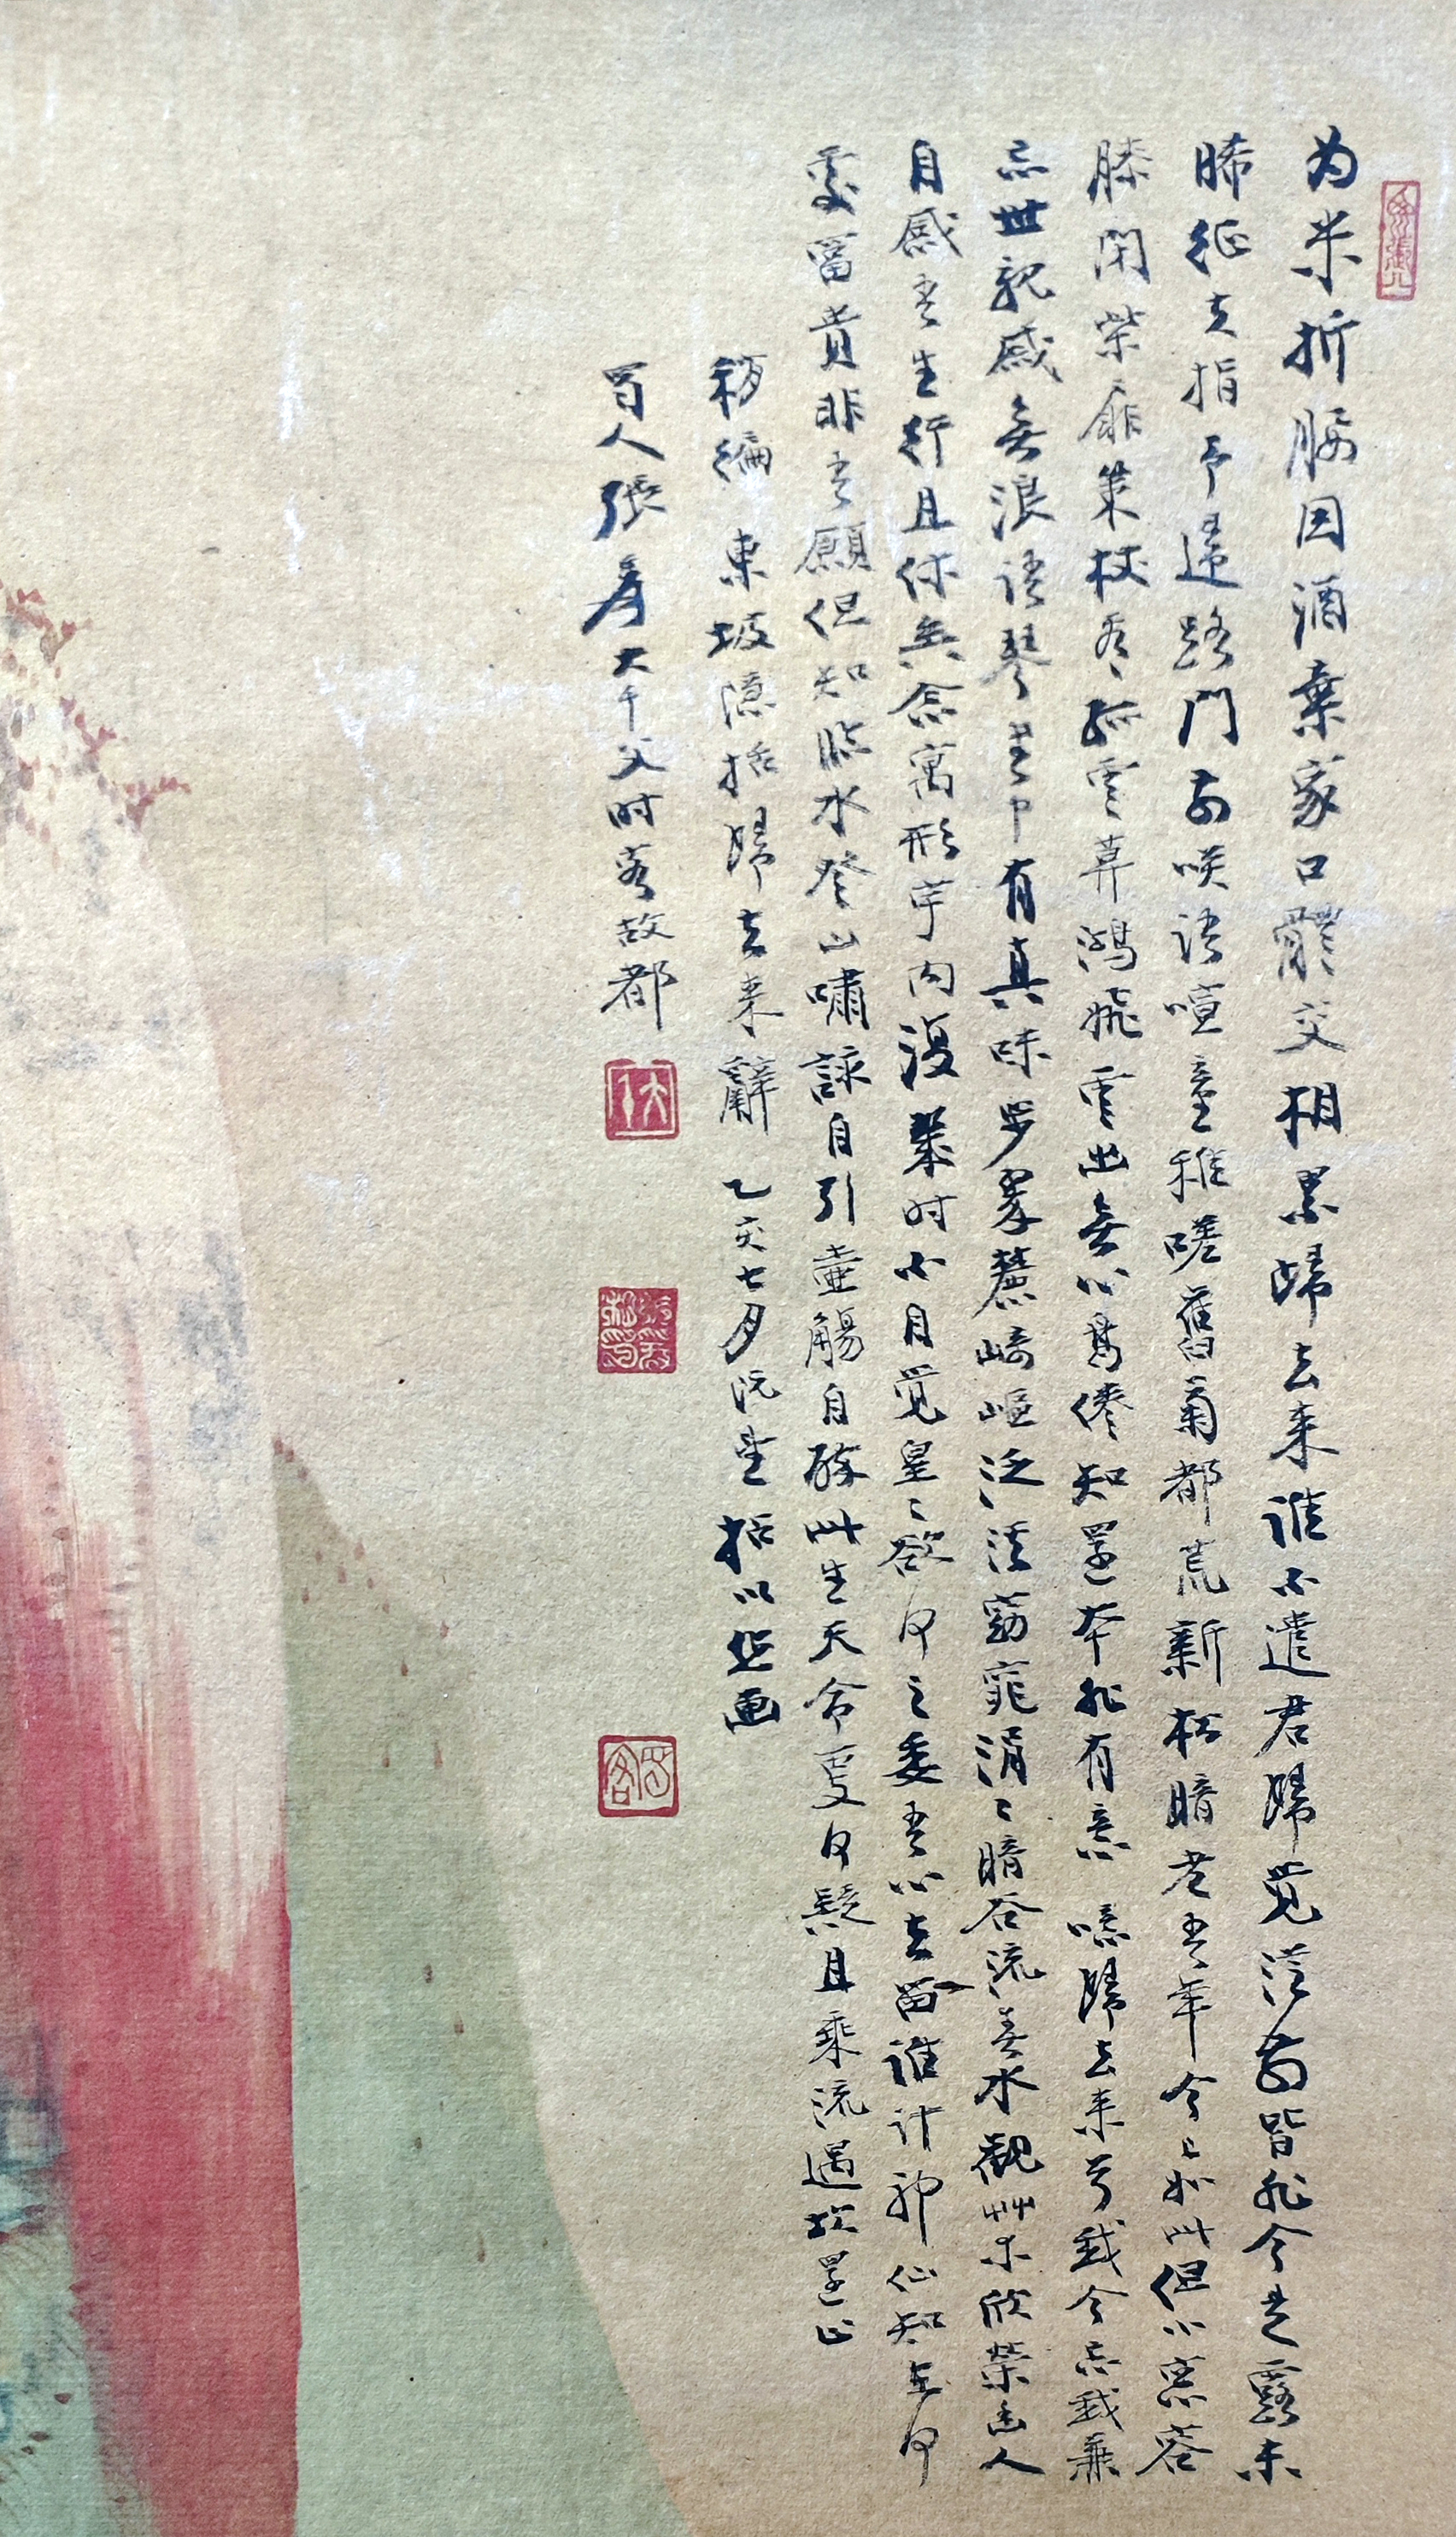 为米折腰因酒棄家口體交相累歸去来誰不遣君歸覺從前皆非今是露未
晞征夫指予歸路門前咲語喧童稚嗟舊菊都荒新松暗老吾年今已如此但小窓容
膝閉柴扉策杖看孤雲暮鴻飛雲出無心鳥倦知還本非有意 噫歸去来兮我今忘我兼
忘世親戚無浪語琴書中有真味步翠麓崎嶇泛溪窈窕涓〻暗谷流春水觀艸木欣榮幽人
自感吾生行且休矣念寓形宇内復幾时不自覺皇〻欲何之委吾心去留誰計神仙知在何
處富貴非吾願但知臨水登山嘯詠自引壺觴自醉此生天命更何疑且乘流遇坎還止
稍編 東坡檃括歸去来辭 乙亥七月 括以作画
蜀人張爰大千父时客故都